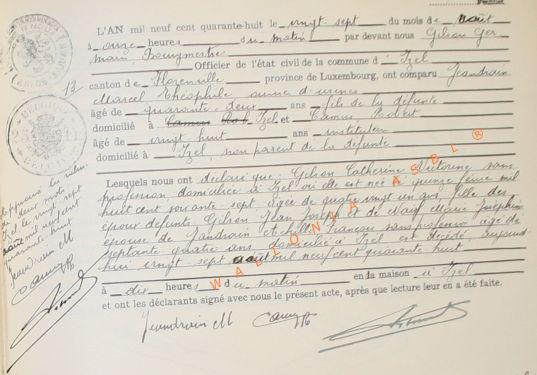 L'AN mil neuf cent quarante-huit le vingt-sept du mois de août
à onze heures du matin par devant nous Gilson Ger
main, Bourgmestre
Officier de l'état civil de la commune d' Izel
canton de Florenville province de Luxembourg, ont comparu Jeandrain
13
Marcel Théophile
âgé de quarante deux ans fils de la défunte
domicilié à Izel et Camus, Robert
âgé de vingt huit ans instituteur
domicilié à Izel, non parent de la défunte
Lesquels nous ont déclaré que: Gilson Catherine Victorine sans
profession, domiciliée à Izel où elle est née le quinze
huit cent soixante sept, âgée de quatre vingt un ans, fille des
époux défunts Gilson Jean Joseph et de Marie Joséphine
épouse de Jandrain Achille François sans profession âgé de
septante quatre ans, domicilié à Izel est décédée, aujourd
hui vingt-sept août mil neuf cent quarante huit
à dix heures du matin en la maison à Izel
et ont les déclarants signé avec nous le présent acte, après que lecture leur en a été faite.
Jeandrain M
WALLONIA ASBL ®
BELGIQUE
de deux mots
Izel le vingt sept
août mil neuf cent
quarante huit
Jeandrain M